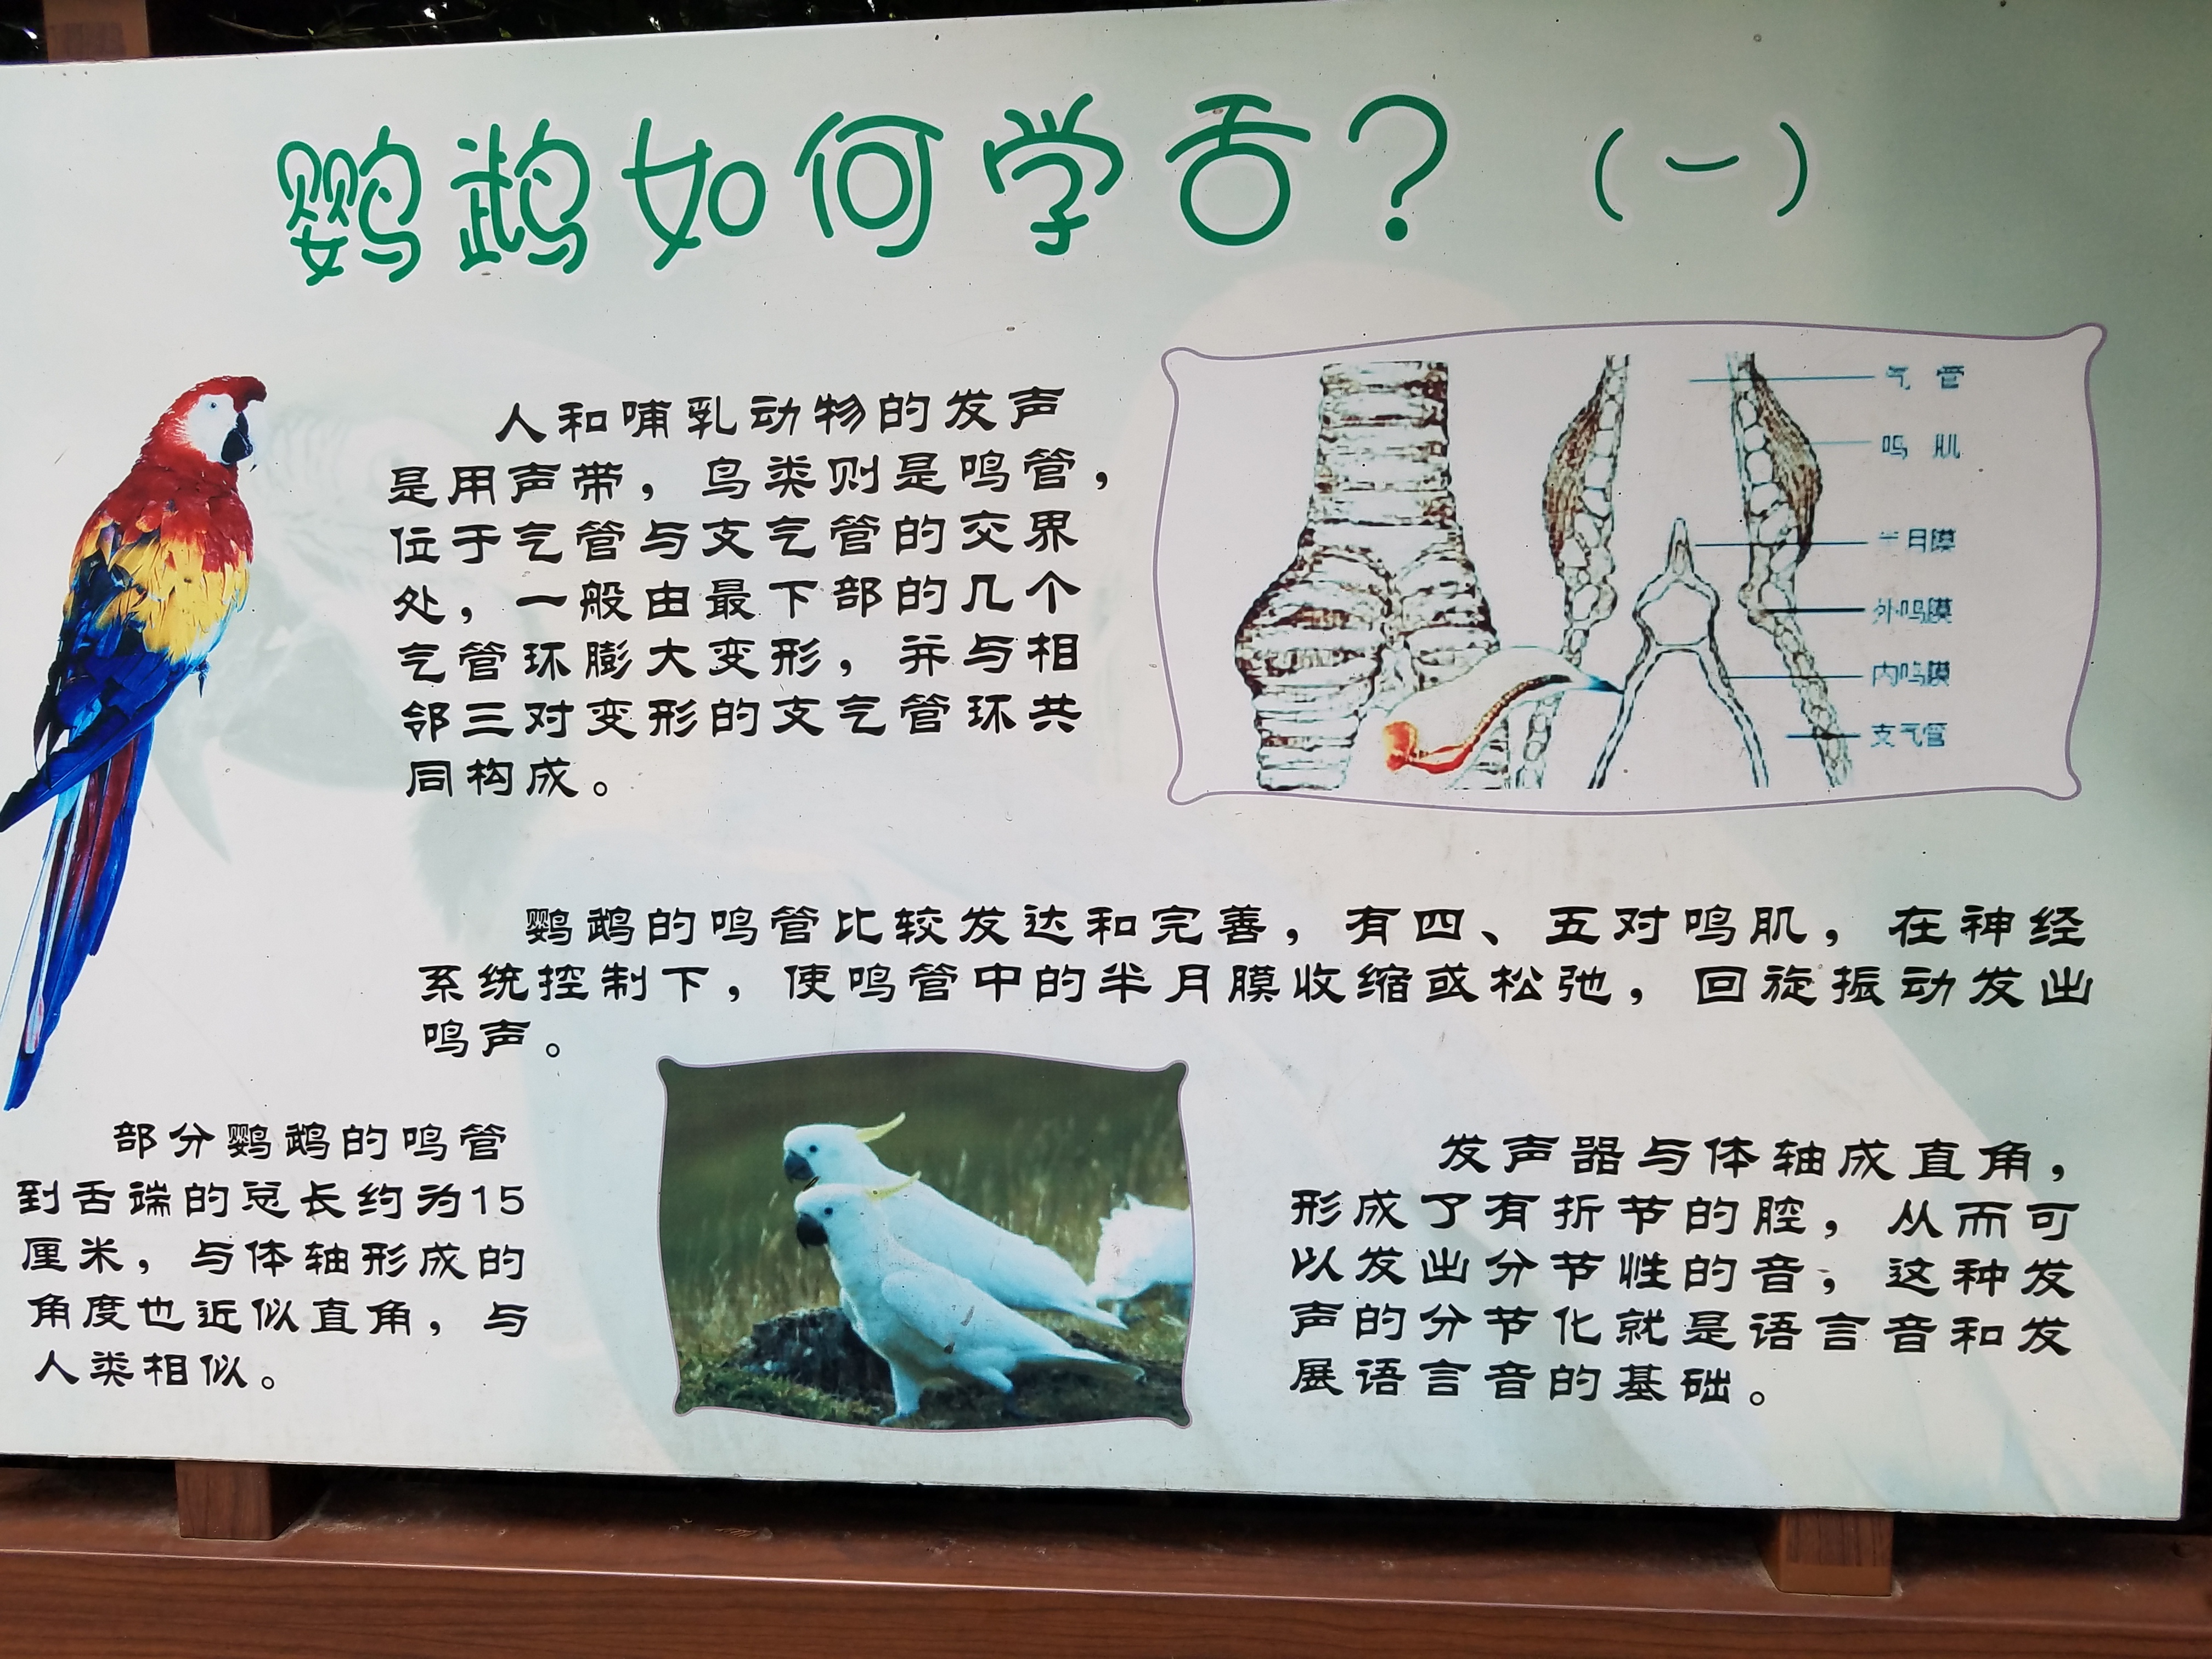 鹦鹉如何学舌？（一）
人和哺乳动物的发声
是用声带，鸟类则是鸣管，
位于气管与支气管的交界
处，一般由最下部的几个
气管环膨大变形，并与相
邻三对变形的支气管环共
同构成。
气管
鸣肌
半月膜
外鸣膜
内鸣膜
支气管
鹦鹉的鸣管比较发达和完善，有四、五对鸣肌，在神经
系统控制下，使鸣管中的半月膜收缩或松弛，回旋振动发出
鸣声。
部分鹦鹉的鸣管
到舌端的总长约为15
厘米，与体轴形成的
角度也近似直角，与
人类相似。
发声器与体轴成直角，
形成了有折节的腔，从而可
以发出分节性的音，这种发
声的分节化就是语言音和发
展语言音的基础。